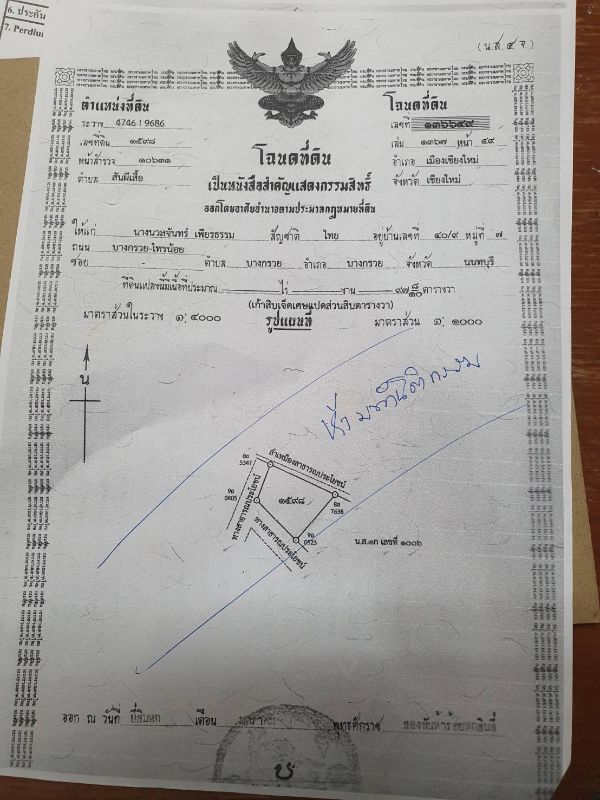 6. ประกัน
7. Perdiu
(น.ส.๔ จ)
ตำแหน่งที่ดิน
ระวาง 4746 I 9686
เลขที่ดิน ๑๕๙๘
หน้าสำรวจ ๑๐๖๓๑
ตำบล สันผีเสื้อ
โฉนดที่ดิน
เลขที่ ๑๓๖๖๔๙
เล่ม ๑๓๖๗ หน้า ๔๙
อำเภอ เมืองเชียงใหม่
จังหวัด เชียงใหม่
โฉนดที่ดิน
เป็นหนังสือสำคัญแสดงกรรมสิทธิ์
ออกโดยอาศัยอำนาจตามประมวลกฎหมายที่ดิน
ให้แก่ นางนวลจันทร์ เพียรธรรม สัญชาติ ไทย อยู่บ้านเลขที่ ๔๐/๙ หมู่ที่ ๗
ถนน บางกรวย-ไทรน้อย
ซอย - ตำบล บางกรวย อำเภอ บางกรวย จังหวัด นนทบุรี
ที่ดินแปลงนี้มีเนื้อที่ประมาณ - ไร่ - งาน ๙๗ ๘/๑๐ ตารางวา
(เก้าสิบเจ็ดเศษแปดส่วนสิบตารางวา)
มาตราส่วนในระวาง ๑:๔๐๐๐ รูปแผนที่ มาตราส่วน ๑:๑๐๐๐
น
ลำเหมืองสาธารณประโยชน์
ฮอ
5347
๑๕๙๘
ฮอ
7638
9อ
5605
ทางสาธารณประโยชน์
ทางสาธารณประโยชน์
9อ
0523
น.ส.๓ก เลขที่ ๑๐๐๖
ออก ณ วันที่ ยี่สิบหก เดือน มกราคม พุทธศักราช สองพันห้าร้อยหกสิบสี่